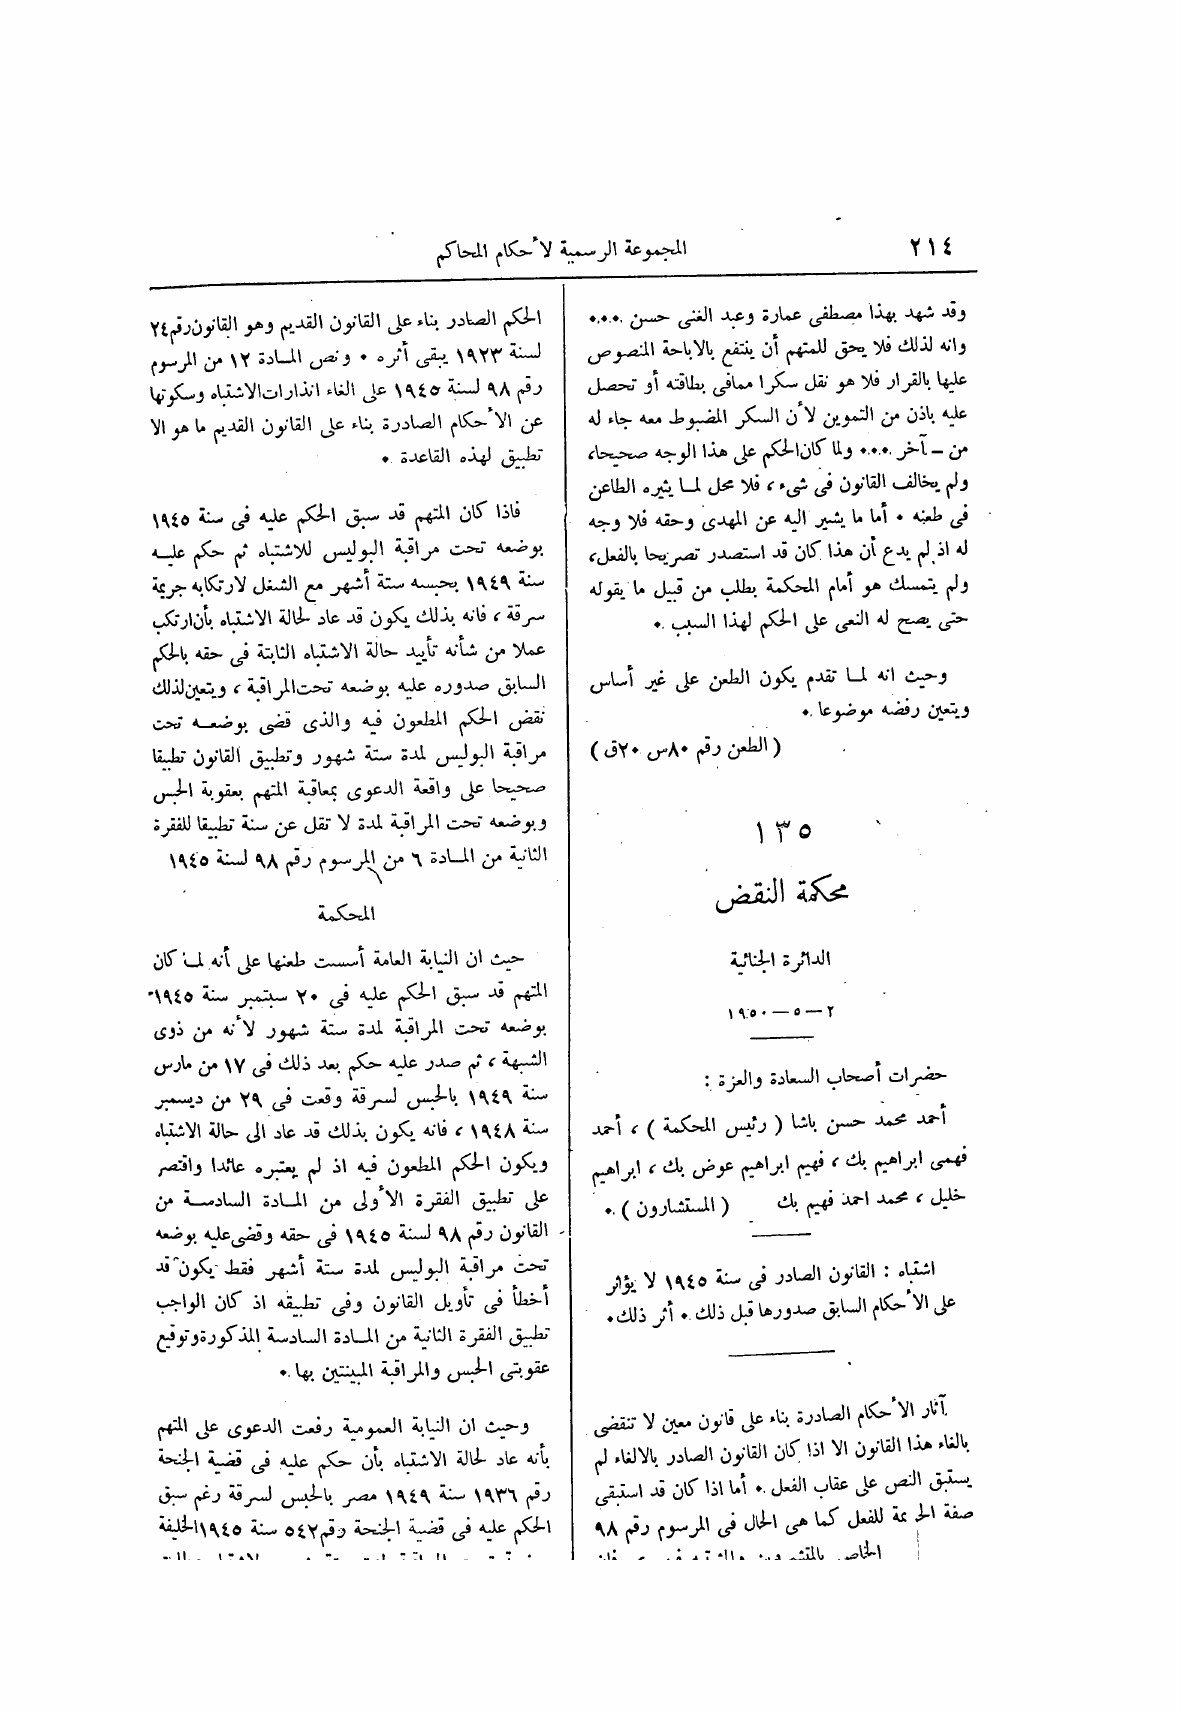 ٢١٤
المجموعة الرسمية لأحكام المحاكم
وقد شهد بهذا مصطفى عمارة وعبد الغنى حسن ...
وانه لذلك فلا يحق للمتهم أن ينتفع بالاباحة المنصوص
عليها بالقرار فلا هو نقل سكرا مما فى بطاقته أو تحصل
عليه باذن من التموين لأن السكر المضبوط معه جاء له
من ـ آخر .... ولما كان الحكم على هذا الوجه صحيحا،
ولم يخالف القانون فى شىء ، فلا محل لما يثيره الطاعن
فى طعنه . أما ما يشير اليه عن المهدى وحقه فلا وجه
له اذ لم يدع أن هذا كان قد استصدر تصريحا بالفعل،
ولم يتمسك هو أمام المحكمة بطلب من قبيل ما يقوله
حتى يصح له النعى على الحكم لهذا السبب .
وحيث انه لما تقدم يكون الطعن على غير أساس
ويتعين رفضه موضوعا .
( الطعن رقم ٨٠ س ٢٠ ق )
١٣٥
محكمة النقض
الدائرة الجنائية
٢ — ٥ — ١٩٥٠
حضرات أصحاب السعادة والعزة :
أحمد محمد حسن باشا ( رئيس المحكمة ) ، أحمد
فهمى ابراهيم بك ، فهيم ابراهيم عوض بك ، ابراهيم
خليل ، محمد احمد فهيم بك ( المستشارون ) .
اشتباه : القانون الصادر فى سنة ١٩٤٥ لا يؤثر
على الأحكام السابق صدورها قبل ذلك . أثر ذلك .
آثار الأحكام الصادرة بناء على قانون معين لا تنقضى
بالغاء هذا القانون الا اذا كان القانون الصادر بالالغاء لم
يستبق النص على عقاب الفعل . أما اذا كان قد استبقى
صفة الجريمة للفعل كما هى الحال فى المرسوم رقم ٩٨
الخاص بالمتشردين والمشتبه فيهم فان
الحكم الصادر بناء على القانون القديم وهو القانون رقم ٢٤
لسنة ١٩٢٣ يبقى أثره . ونص المادة ١٢ من المرسوم
رقم ٩٨ لسنة ١٩٤٥ على الغاء انذارات الاشتباه وسكوتها
عن الأحكام الصادرة بناء على القانون القديم ما هو الا
تطبيق لهذه القاعدة .
فاذا كان المتهم قد سبق الحكم عليه فى سنة ١٩٤٥
بوضعه تحت مراقبة البوليس للاشتباه ثم حكم عليه
سنة ١٩٤٩ بحبسه ستة أشهر مع الشغل لارتكابه جريمة
سرقة ، فانه بذلك يكون قد عاد لحالة الاشتباه بأن ارتكب
عملا من شأنه تأييد حالة الاشتباه الثابتة فى حقه بالحكم
السابق صدوره عليه بوضعه تحت المراقبة ، ويتعين لذلك
نقض الحكم المطعون فيه والذى قضى بوضعه تحت
مراقبة البوليس لمدة ستة شهور وتطبيق القانون تطبيقا
صحيحا على واقعة الدعوى بمعاقبة المتهم بعقوبة الحبس
وبوضعه تحت المراقبة لمدة لا تقل عن سنة تطبيقا للفقرة
الثانية من المادة ٦ من المرسوم رقم ٩٨ لسنة ١٩٤٥
المحكمة
حيث ان النيابة العامة أسست طعنها على أنه لما كان
المتهم قد سبق الحكم عليه فى ٢٠ سبتمبر سنة ١٩٤٥
بوضعه تحت المراقبة لمدة ستة شهور لأنه من ذوى
الشبهة ، ثم صدر عليه حكم بعد ذلك فى ١٧ من مارس
سنة ١٩٤٩ بالحبس لسرقة وقعت فى ٢٩ من ديسمبر
سنة ١٩٤٨ ، فانه يكون بذلك قد عاد الى حالة الاشتباه
ويكون الحكم المطعون فيه اذ لم يعتبره عائدا واقتصر
على تطبيق الفقرة الأولى من المادة السادسة من
القانون رقم ٩٨ لسنة ١٩٤٥ فى حقه وقضى عليه بوضعه
تحت مراقبة البوليس لمدة ستة أشهر فقط يكون قد
أخطأ فى تأويل القانون وفى تطبيقه اذ كان الواجب
تطبيق الفقرة الثانية من المادة السادسة المذكورة وتوقيع
عقوبتى الحبس والمراقبة المبينتين بها .
وحيث ان النيابة العمومية رفعت الدعوى على المتهم
بأنه عاد لحالة الاشتباه بأن حكم عليه فى قضية الجنحة
رقم ١٩٣٦ سنة ١٩٤٩ مصر بالحبس لسرقة رغم سبق
الحكم عليه فى قضية الجنحة رقم ٥٤٢ سنة ١٩٤٥ الخليفة